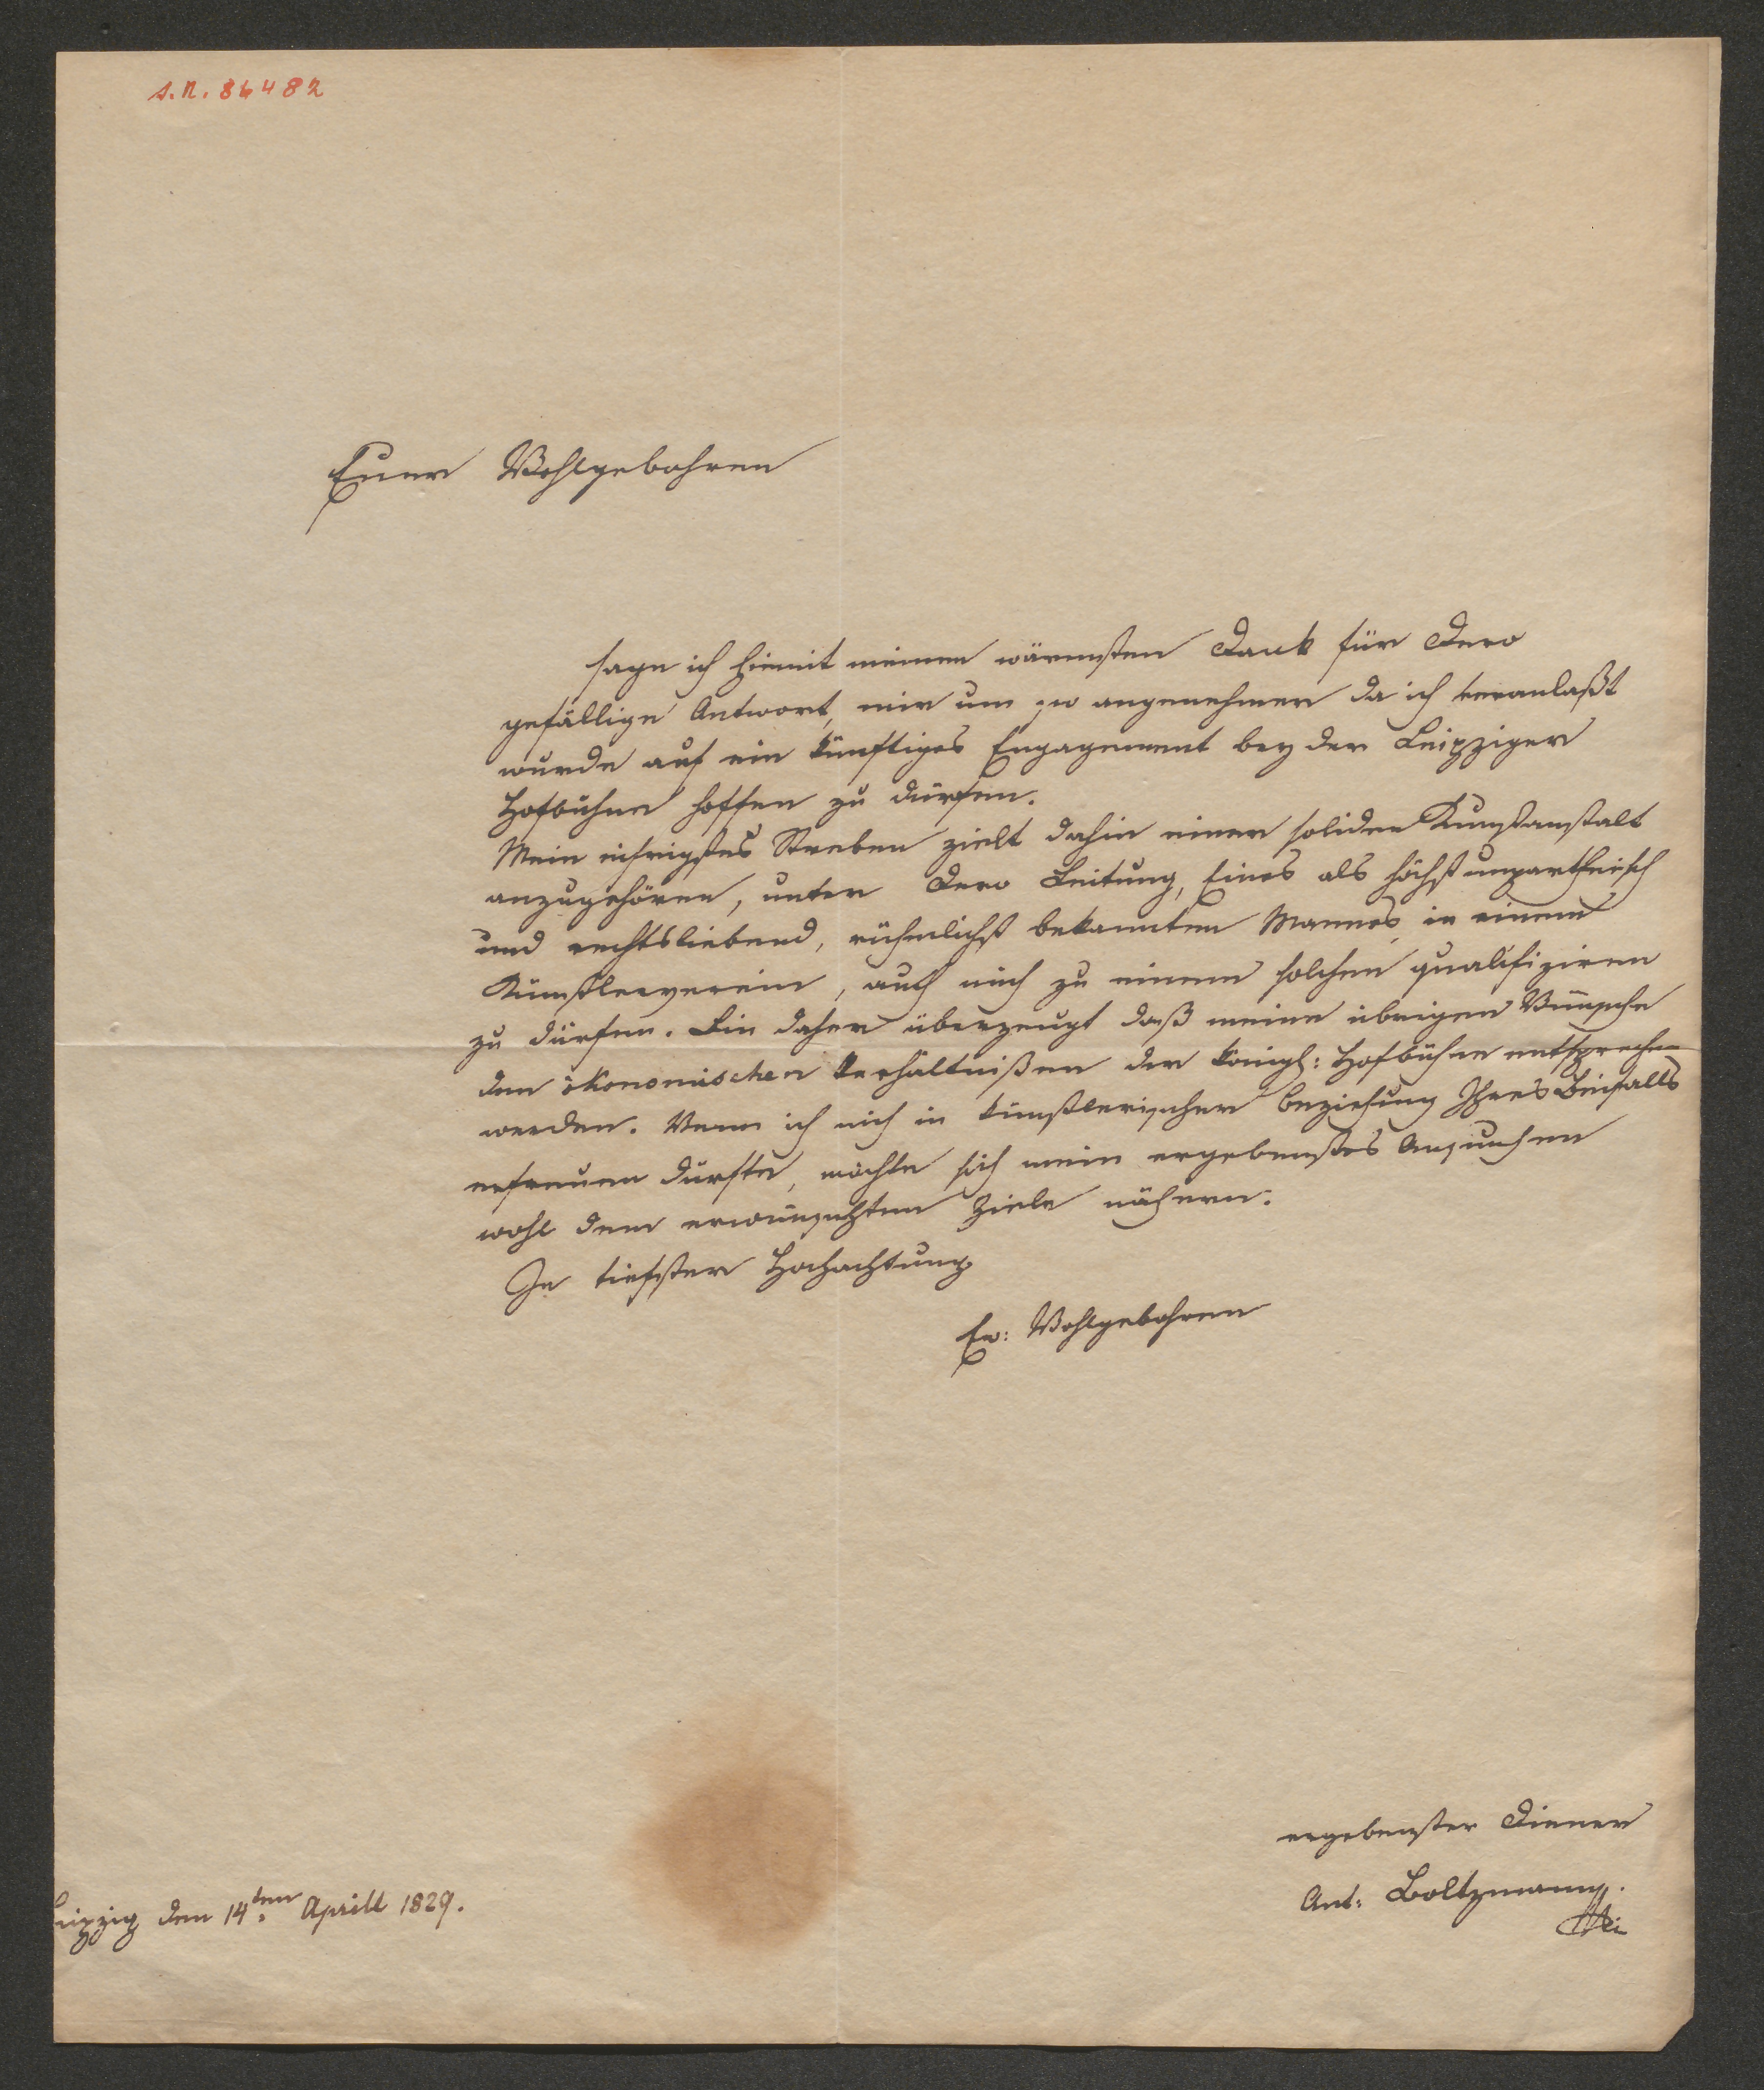 A.N. 86482
Euer Wohlgebohren
sage ich hiemit meinen wärmsten Dank für Dero
gefällige Antwort, mir um so angenehmer da ich veranlaßt
wurde auf ein künftiges Engagement bey der Leipziger
Hofbühne hoffen zu dürfen.
Mein eifrigstes Streben zielt dahin einer soliden Kunstanstalt
anzugehören, unter Dero Leitung, Eines als höchst unpartheiisch
und rechtsliebend, rühmlichst bekannten Mannes, in einem
Künstlerverein, auch mich zu einem solchen qualifiziren
zu dürfen. Bin daher überzeugt daß meine übrigen Wünsche
den ökonomischen Verhältnißen der königl: Hofbühne entsprechen
werden. Wenn ich mich in künstlerischer Beziehung Ihres Beifalls
erfreuen dürfte, möchte sich mein ergebenstes Ansuchen
wohl dem erwünschten Ziele nähern.
In tiefster Hochachtung
Ew: Wohlgebohren
ergebenster Diener
Ant: Boltzmann.
Leipzig den 14ten Aprill 1829.